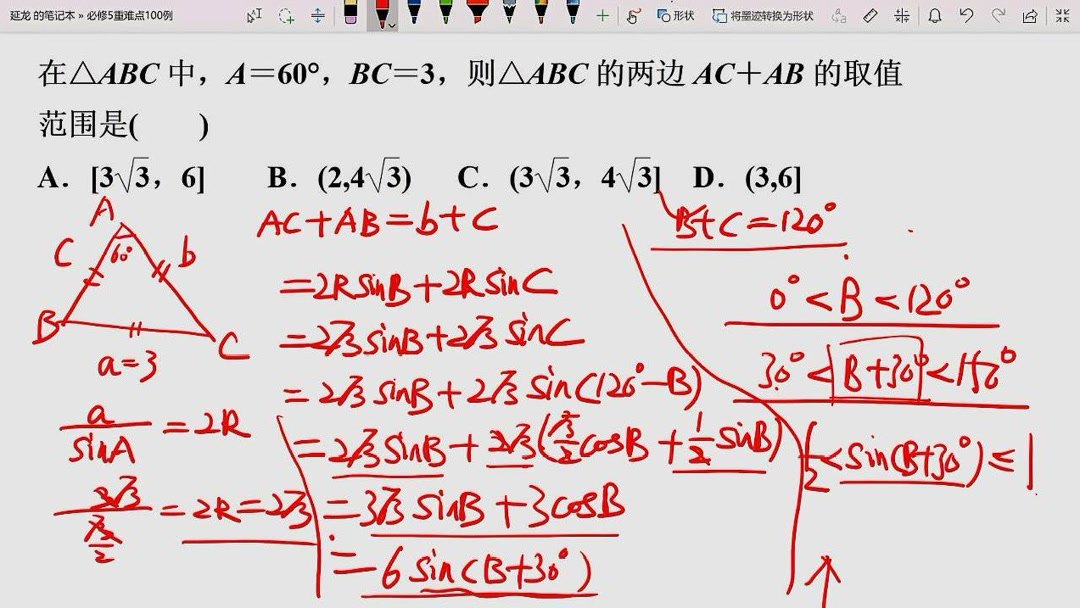 延龙 的笔记本 » 必修5重难点100例
形状 将墨迹转换为形状
在△ABC 中，A＝60°，BC＝3，则△ABC 的两边 AC＋AB 的取值
范围是(　　)
A．[3√3，6]　B．(2,4√3)　C．(3√3，4√3]　D．(3,6]
A
C 60° b
B C
a=3
a/sinA = 2R
= 2R = 2√3
AC+AB=b+C
=2RsinB+2RsinC
=2√3sinB+2√3sinC
=2√3sinB+2√3sin(120°-B)
=2√3sinB+2√3(√3/2 cosB+1/2 sinB)
=3√3sinB+3cosB
=6sin(B+30°)
B+C=120°
0°<B<120°
30°<B+30°<150°
1/2<sin(B+30°)≤1